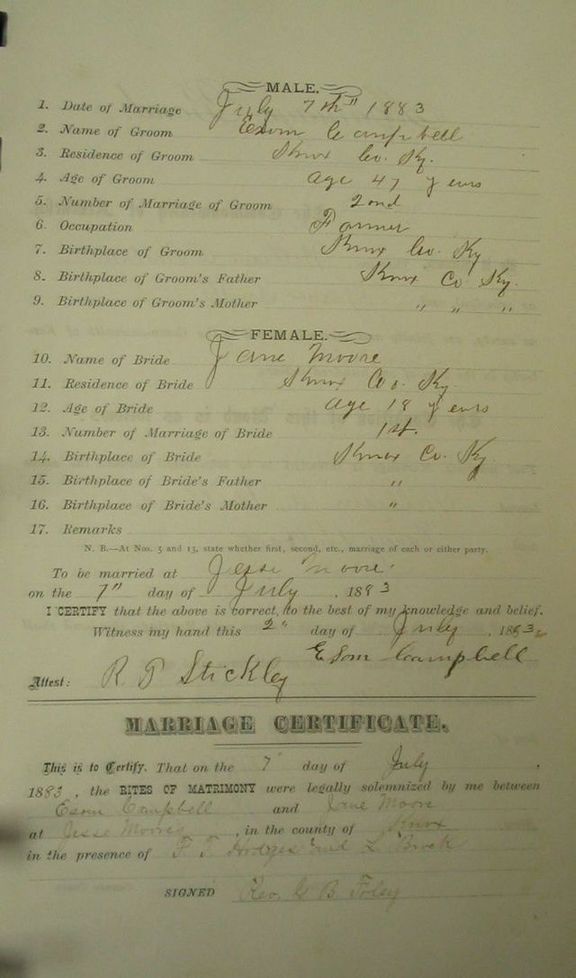 MALE.
1. Date of Marriage July 7th" 1883
2. Name of Groom Esom Campbell
3. Residence of Groom Knox Co. Ky.
4. Age of Groom age 47 years
5. Number of Marriage of Groom 2ond
6. Occupation Farmer
7. Birthplace of Groom Knox Co. Ky
8. Birthplace of Groom's Father Knox Co Ky.
9. Birthplace of Groom's Mother " " "
FEMALE.
10. Name of Bride Jane Moore
11. Residence of Bride Knox Co. Ky.
12. Age of Bride age 18 years
13. Number of Marriage of Bride 1st.
14. Birthplace of Bride Knox Co. Ky
15. Birthplace of Bride's Father "
16. Birthplace of Bride's Mother "
17. Remarks
N. B.—At Nos. 5 and 13, state whether first, second, etc., marriage of each or either party.
To be married at Jesse Moore'
on the 7" day of July , 1883
I CERTIFY that the above is correct, to the best of my knowledge and belief.
Witness my hand this 2" day of July , 1883
Esom Campbell
Attest: R P Stickley
MARRIAGE CERTIFICATE.
This is to Certify, That on the 7' day of July .
1883 , the RITES OF MATRIMONY were legally solemnized by me between
Esom Campbell and Jane Moore
at Jesse Moores , in the county of Knox
in the presence of Hodges and L Brock
SIGNED Rev. G B Foley